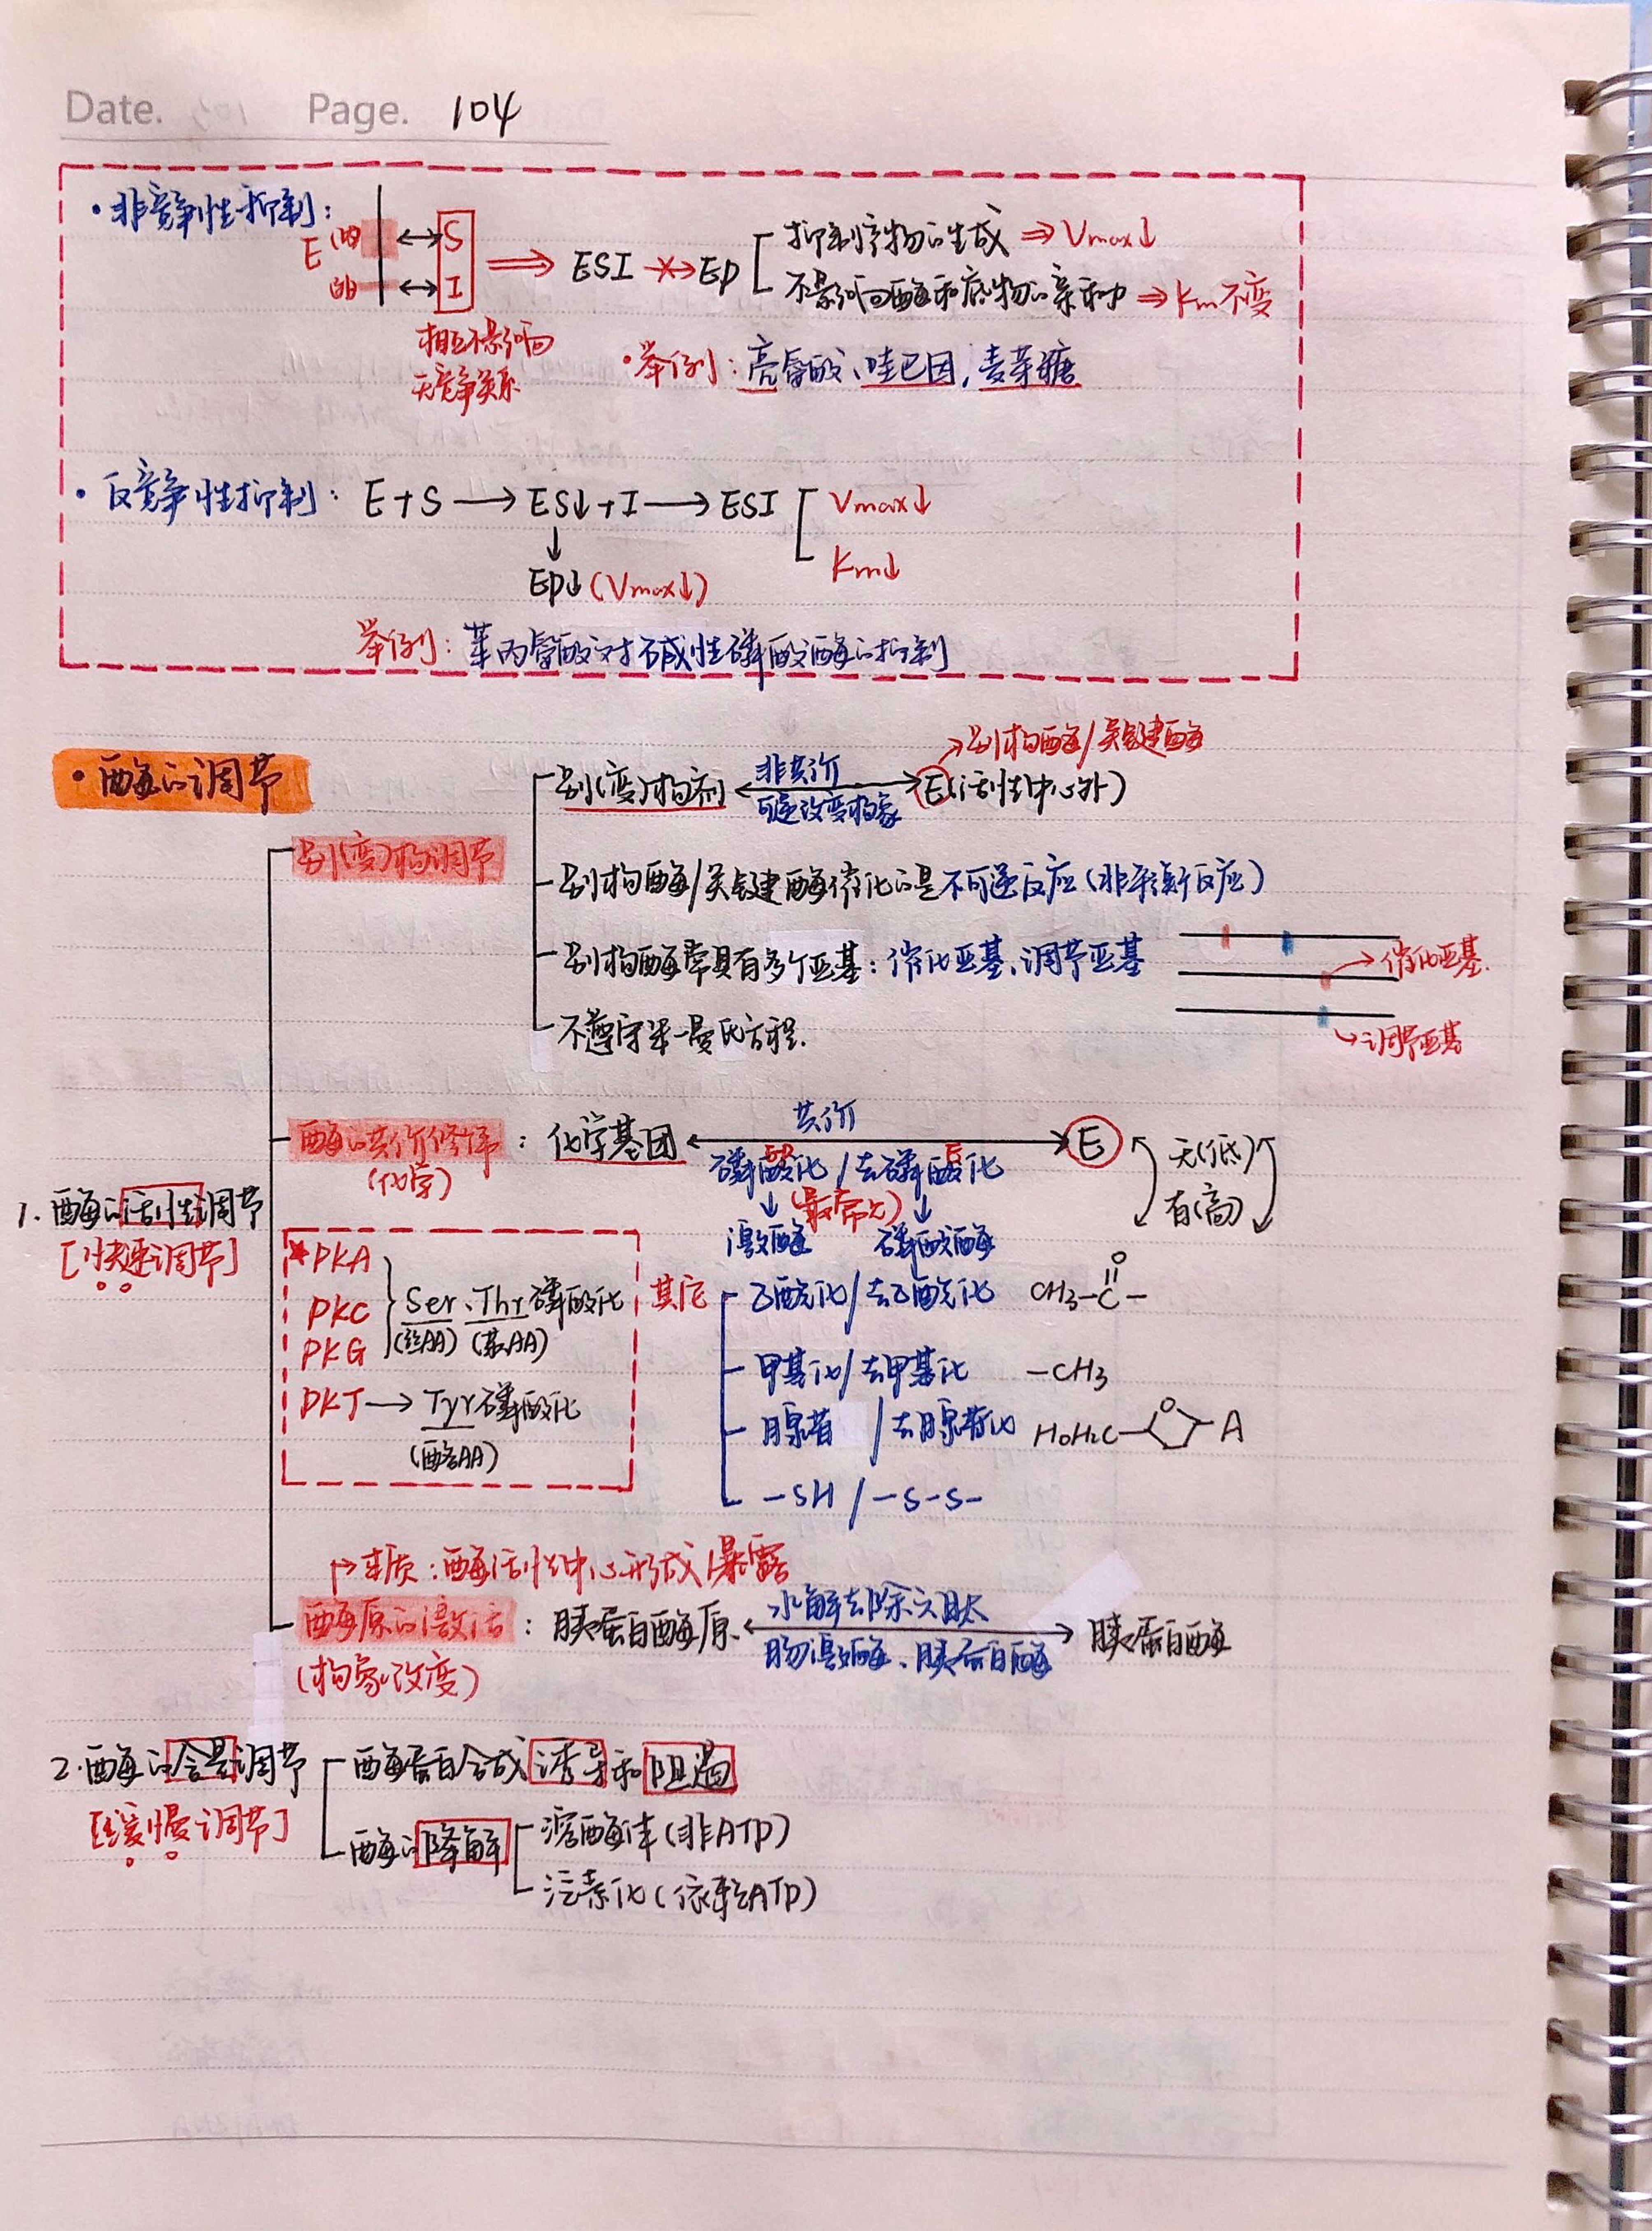 Date. Page. 104
• 非竞争性抑制:
E 内 ↔ S
外 ↔ I
⇒ ESI ↛ EP
抑制产物的生成 ⇒ Vmax↓
不影响酶和底物的亲和力 ⇒ Km不变
相互不影响
无竞争关系
• 举例: 亮氨酸、哇巴因, 麦芽糖
• 反竞争性抑制: E+S → ES↓+I → ESI
Vmax↓
Km↓
↓
EP↓ (Vmax↓)
举例: 苯丙氨酸对碱性磷酸酶的抑制
• 酶的调节
1. 酶的活性调节
[快速调节]
别(变)构调节
别(变)构剂 ↔ E(活性中心外)
非共价
可逆改变构象
→别构酶/关键酶
别构酶/关键酶催化的是不可逆反应(非平衡反应)
别构酶常具有多个亚基: 催化亚基、调节亚基
→催化亚基.
→调节亚基
不遵守米-曼氏方程.
酶的共价修饰: 化学基团 ↔ E
(化学)
共价
磷酸化/去磷酸化
(最常见)
激酶 磷酸酶
无(低)
有(高)
*PKA
PKC
PKG
Ser、Thr磷酸化
(丝AA) (苏AA)
PKT → Tyr磷酸化
(酪AA)
其它
乙酰化/去乙酰化 CH3-C-
O
甲基化/去甲基化 -CH3
腺苷 /去腺苷化 HOH2C O A
-SH / -S-S-
→本质: 酶活性中心形成/暴露
酶原的激活: 胰蛋白酶原 ↔ 胰蛋白酶
(构象改变)
水解去除六肽
肠激酶、胰蛋白酶
2. 酶的含量调节
[缓慢调节]
酶蛋白合成诱导和阻遏
酶的降解
溶酶体(非ATP)
泛素化(依赖ATP)